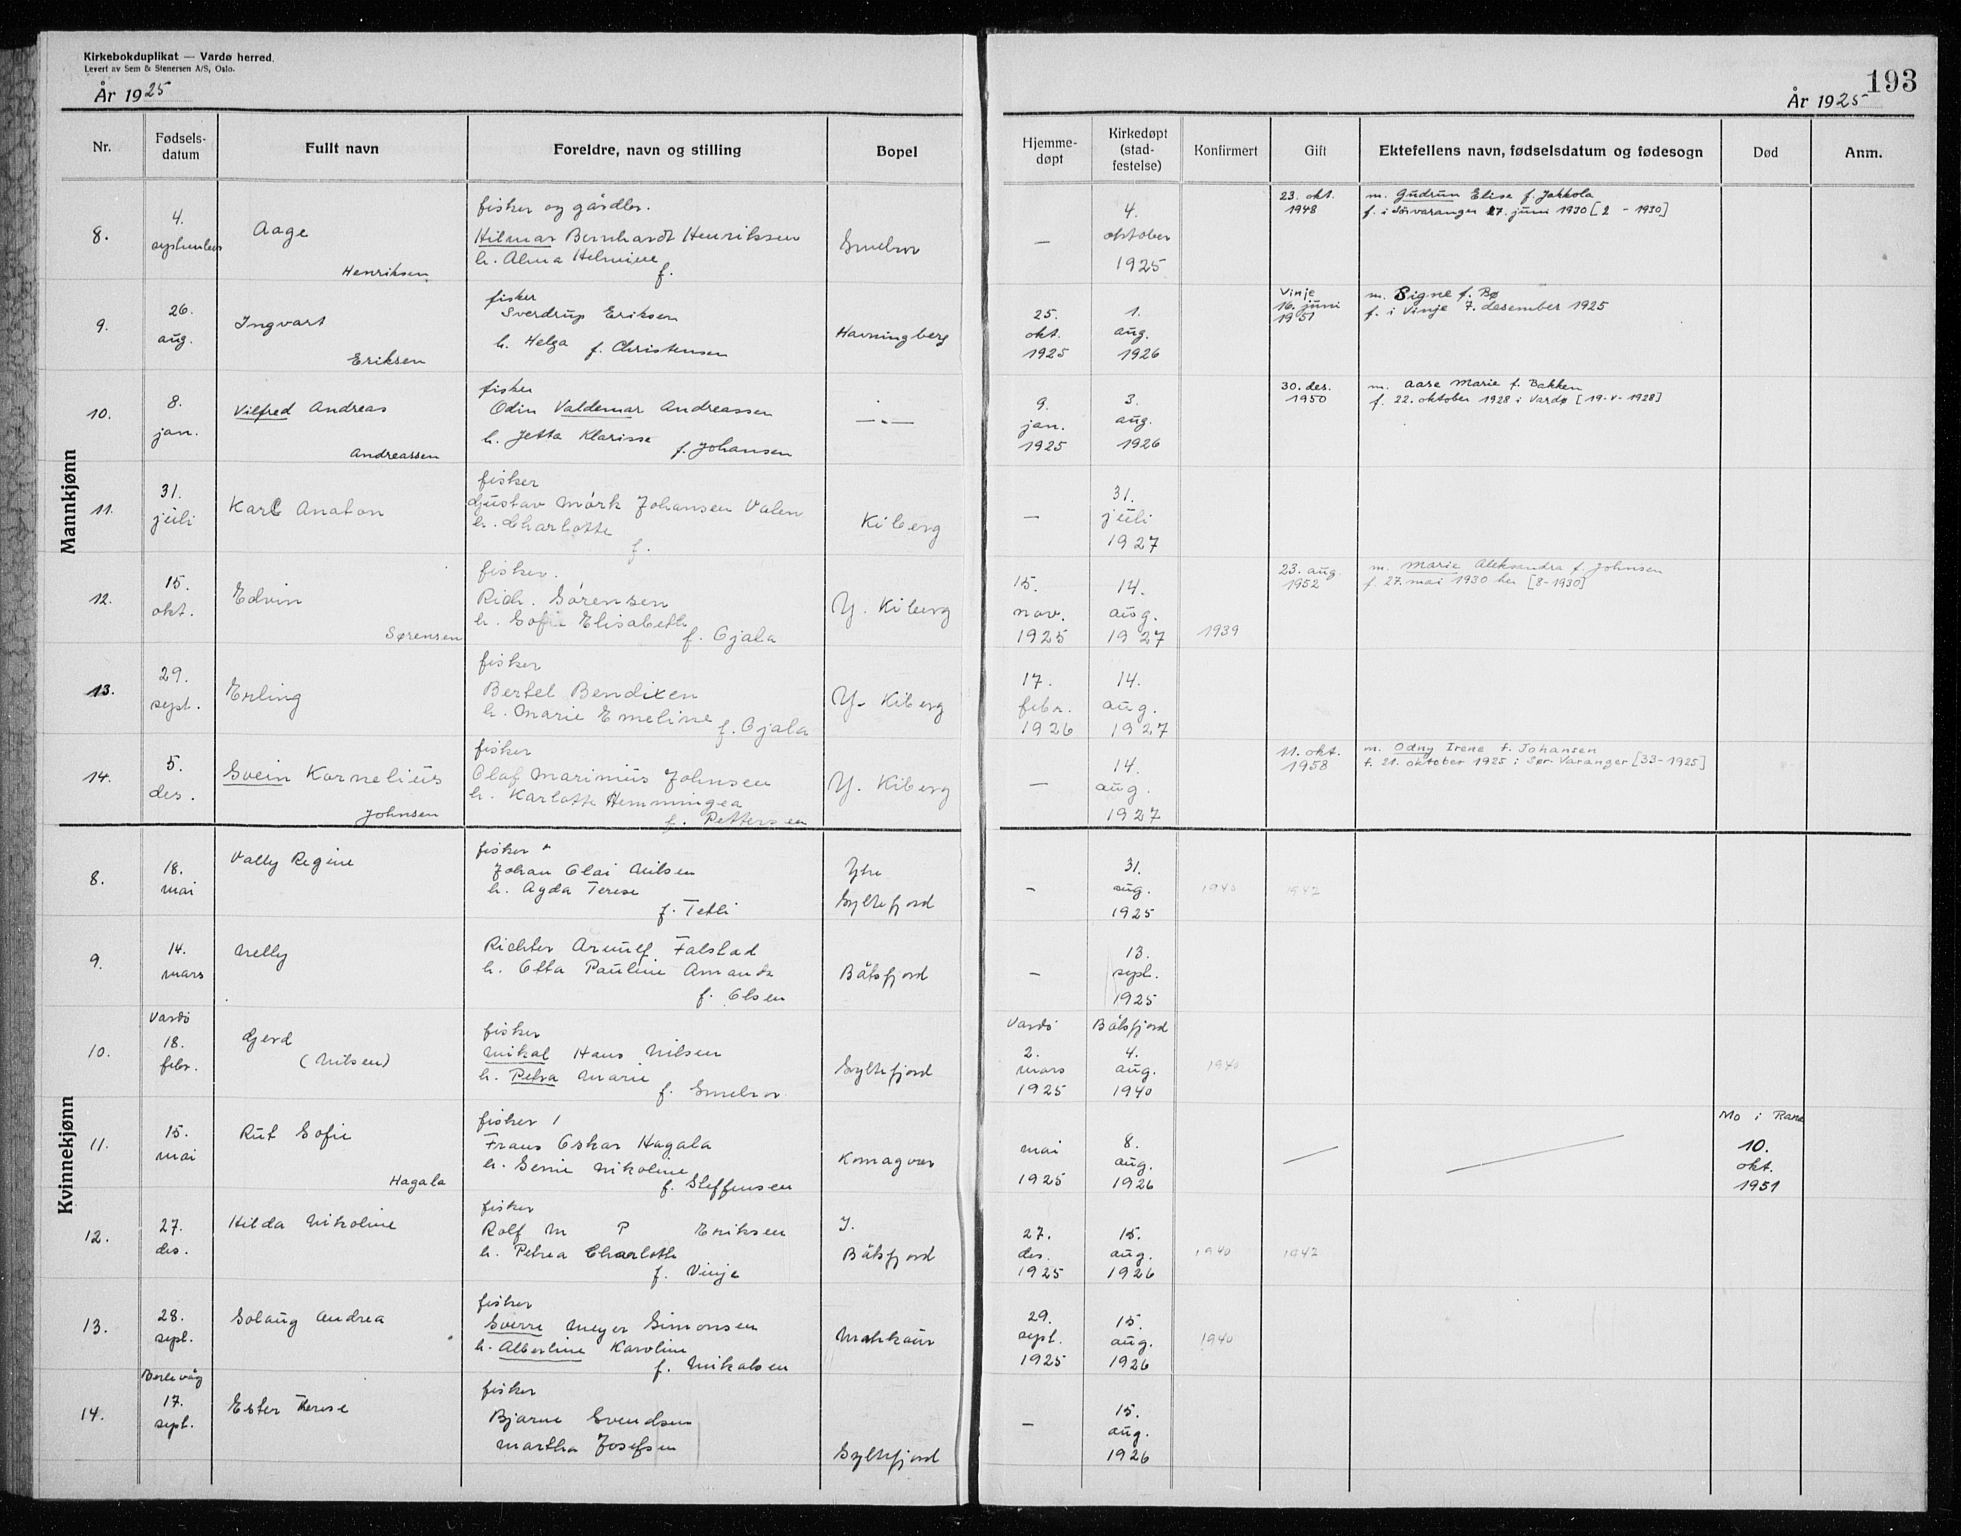 Kirkebokduplikat — Vardø herred.
Levert av Sem & Stenersen A/S, Oslo.
År 1925
193
År 1925
Nr. Fødsels-datum Fullt navn Foreldre, navn og stilling Bopel Hjemme-døpt Kirkedøpt (stad-festelse) Konfirmert Gift Ektefellens navn, fødselsdatum og fødesogn Død Anm.
Mannkjønn
8. 4. september Aage Henriksen
fisker og gårdbr.
Hilmar Bernhardt Henriksen
h. Alma Helmine f.
Smelror
— 4. oktober 1925
23. okt. 1948
m. Gudrun Elise f. Jakkola
f. i Sørvaranger 27. juni 1930 [2 - 1930]
9. 26. aug. Ingvart Eriksen
fisker
Sverdrup Eriksen
h. Helga f. Christensen
Havningberg
25. okt. 1925
1. aug. 1926
Vinje 16. juni 1951
m. Signe f. Bø
f. i Vinje 7. desember 1925
10. 8. jan. Vilfred Andreas Andreassen
fisker
Odin Valdemar Andreassen
h. Jetta Klarisse f. Johansen
—„—
9. jan. 1925
3. aug. 1926
30. des. 1950
m. Aase Marie f. Bakken
f. 22. oktober 1928 i Vardø [19-V-1928]
11. 31. juli Karl Anaton
fisker
Gustav Mørk Johansen Valen
h. Charlotte f.
Kiberg
— 31. juli 1927
12. 15. okt. Edvin Sørensen
fisker.
Rich. Sørensen
h. Sofie Elisabeth f. Ojala
Y. Kiberg
15. nov. 1925
14. aug. 1927
1939
23. aug. 1952
m. Marie Aleksandra f. Johnsen
f. 27. mai 1930 her [8-1930]
13. 29. sept. Erling
fisker
Bertel Bendixen
h. Marie Emeline f. Ojala
Y. Kiberg
17. febr. 1926
14. aug. 1927
14. 5. des. Svein Kornelius Johnsen
fisker
Olaf Marinius Johnsen
h. Karlotte Hemmingea
f. Pettersen
Y. Kiberg
— 14. aug. 1927
11. okt. 1958
m. Odny Irene f. Johansen
f. 21. oktober 1925 i Sør Varanger [33-1925]
Kvinnekjønn
8. 18. mai Vally Regine
fisker
Johan Olai Nilsen
h. Agda Terese
f. Tetli
Ytre Syltefjord
— 31. aug. 1925
1940 1947
9. 14. mars Nelly
Richter Arnulf Falstad
h. Otta Pauline Amanda
f. Olsen
Båtsfjord
— 13. sept. 1925
10. Vardø 18. febr. Gjerd (Nilsen)
fisker
Mikal Hans Nilsen
h. Petra Marie
f. Smelror
Syltefjord
Vardø 2. mars 1925
Båtsfjord 4. aug. 1940
1940
11. 15. mai Rut Sofie Hagala
fisker
Frans Oskar Hagala
h. Senie Nikoline
f. Steffensen
Komagvær
mai 1925
8. aug. 1926
— —
Mo i Rana 10. okt. 1951
12. 27. des. Hilda Nikoline
fisker
Rolf M P Eriksen
h. Petrea Charlotte
f. Vinje
I. Båtsfjord
27. des. 1925
15. aug. 1926
1940 1947
13. 28. sept. Solaug Andrea
fisker
Sverre Meyer Simonsen
h. Albertine Karoline
f. Mikalsen
Makkaur
29. sept. 1925
15. aug. 1926
1940
14. Berlevåg 17. sept. Ester Therese
fisker
Bjarne Svendsen
Martha Josefsen
Syltefjord
— 15. aug. 1926